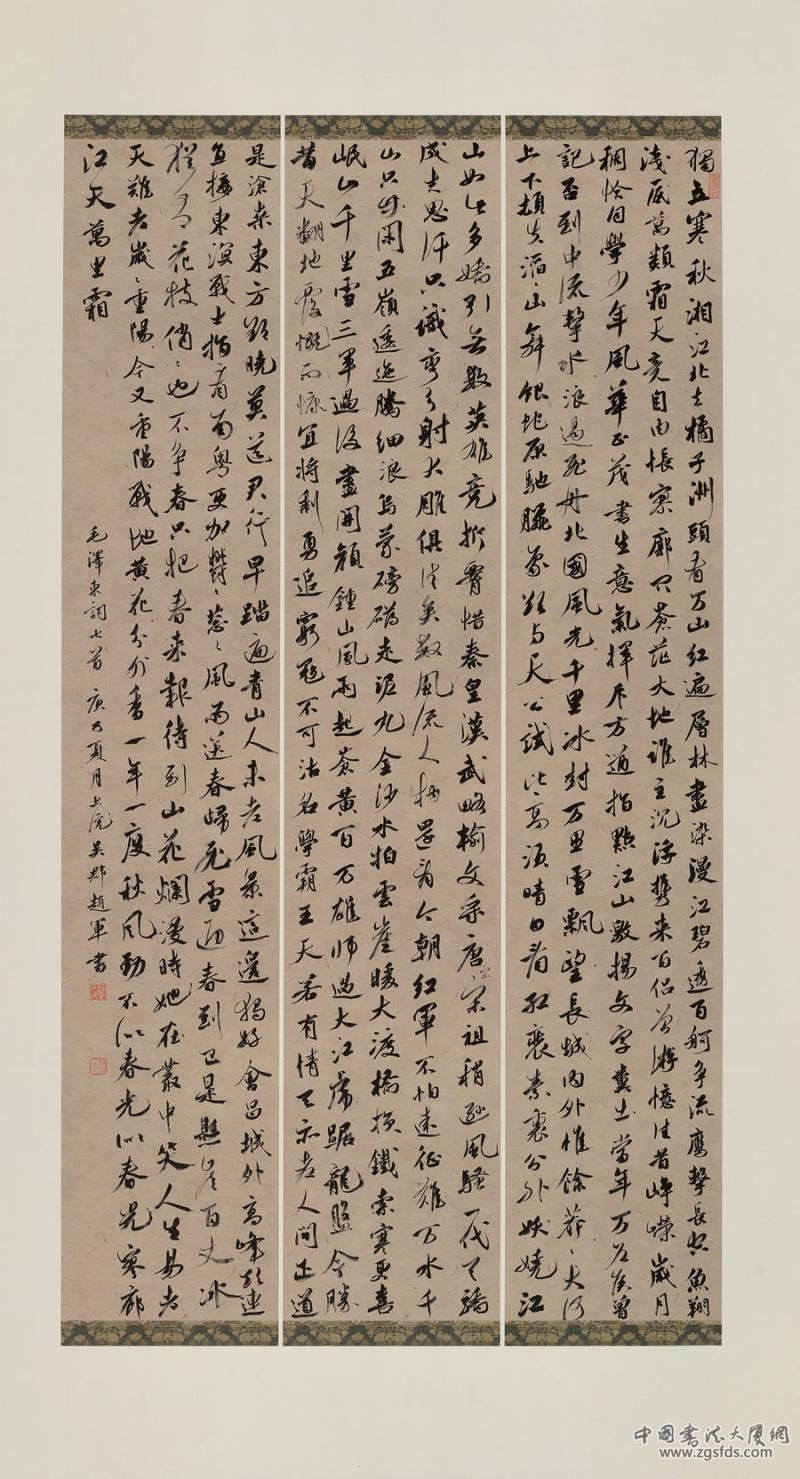 獨立寒秋湘江北去橘子洲頭看万山红遍層林盡染漫江碧透百舸争流鹰擊長空魚翔
淺底萬類霜天竞自由悵寥廓问蒼茫大地誰主沉浮攜来百侣曾游憶往昔崢嶸歲月
稠恰同學少年風華正茂書生意氣揮斥方遒指點江山激揚文字糞土當年万户侯曾
記否到中流擊水浪遏飛舟北國風光千里冰封万里雪飄望長城内外惟餘莽〻大河
上下頓失滔〻山舞銀蛇原馳臘象欲与天公試比高須晴日看红裹素裹分外妖嬈江
山如此多嬌引無數英雄竞折腰惜秦皇漢武略輸文采唐宗宋祖稍遜風騷一代天驕
成吉思汗只識彎弓射大雕俱往矣數風流人物還看今朝红軍不怕遠征難万水千
山只等閑五嶺逶迤騰細浪烏蒙磅礴走泥丸金沙水拍雲崖暖大渡橋横鐵索寒更喜
岷山千里雪三軍過後盡開顏鍾山風雨起蒼黄百万雄師過大江虎踞龍盤今勝
昔天翻地覆慨而慷宜將剩勇追窮寇不可沽名學霸王天若有情天亦老人間正道
是滄桑東方欲曉莫道君行早踏遍青山人未老風景這邊獨好會昌城外高峰顛連
直接東溟戰士指看南粤更加鬱〻葱〻風雨送春歸飛雪迎春到已是懸崖百丈冰
猶有花枝俏〻也不争春只把春来報待到山花爛漫時她在叢中笑人生易老
天難老歲〻重陽今又重陽戰地黄花分外香一年一度秋風勁不似春光似春光寥廓
江天萬里霜
毛澤東詞七首 庚子夏月上浣吳郡趙軍書
中國書法大廈網
www.zgsfds.com